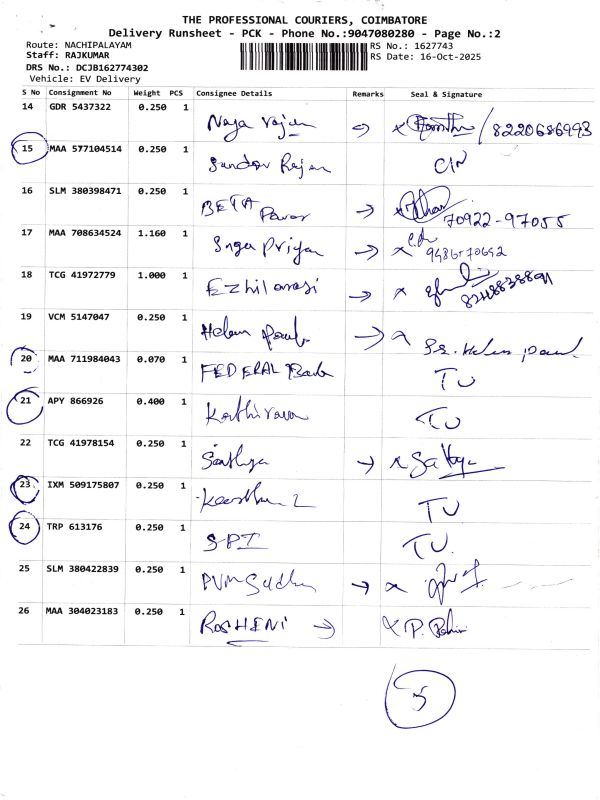 THE PROFESSIONAL COURIERS, COIMBATORE
Delivery Runsheet - PCK - Phone No.:9047080280 - Page No.:2
Route: NACHIPALAYAM
Staff: RAJKUMAR
DRS No.: DCJB162774302
Vehicle: EV Delivery
RS No.: 1627743
RS Date: 16-Oct-2025
S No Consignment No Weight PCS Consignee Details Remarks Seal & Signature
14 GDR 5437322 0.250 1
Naga rajan → x / 8220686993
15 MAA 577104514 0.250 1
Sundar Rajan CIN
16 SLM 380398471 0.250 1
BETA Power → x 70922-97055
17 MAA 708634524 1.160 1
Priyan → x 9486570652
18 TCG 41972779 1.000 1
Ezhilarasi → x
19 VCM 5147047 0.250 1
Helen Paul →
20 MAA 711984043 0.070 1
FEDERAL Bank TU
21 APY 866926 0.400 1
Kathiravan TU
22 TCG 41978154 0.250 1
Sathya → x Sathya
23 IXM 509175807 0.250 1
TU
24 TRP 613176 0.250 1
SPI TU.
25 SLM 380422839 0.250 1
PVM Sudha → x
26 MAA 304023183 0.250 1
ROSHENI → x P.
5